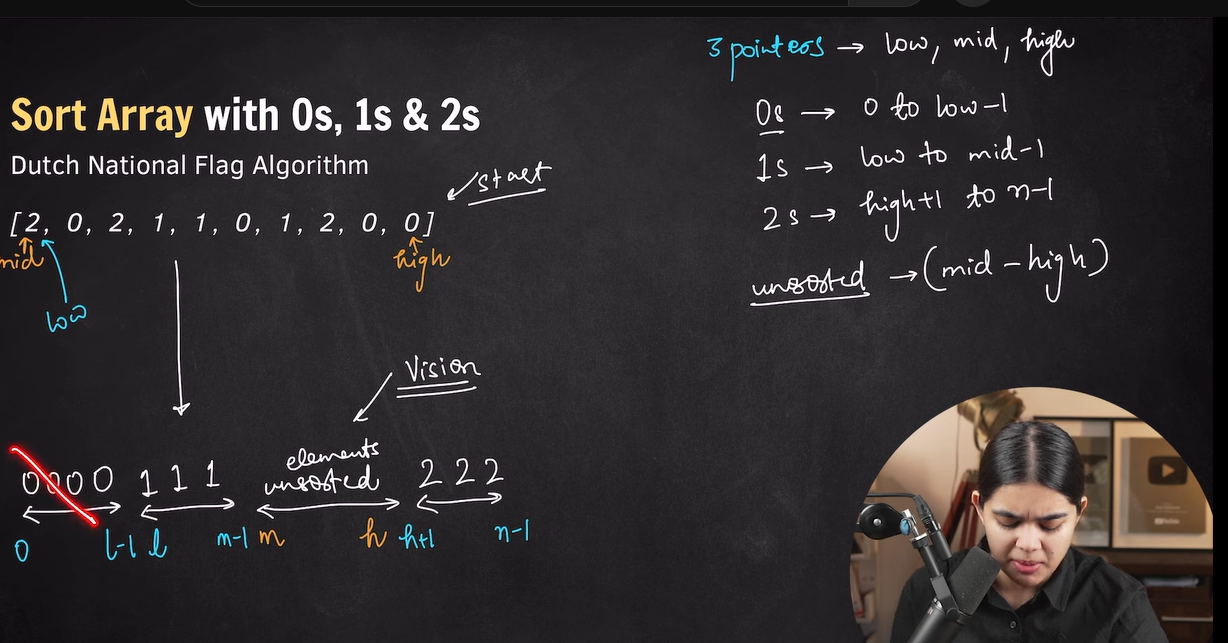 Sort Array with 0s, 1s & 2s
Dutch National Flag Algorithm
start
[2, 0, 2, 1, 1, 0, 1, 2, 0, 0]
mid
high
low
Vision
elements
unsorted
0000 111
222
0 l-1 l m-1 m h h+1 n-1
3 pointers → low, mid, high
0s → 0 to low-1
1s → low to mid-1
2s → high+1 to n-1
unsorted → (mid - high)